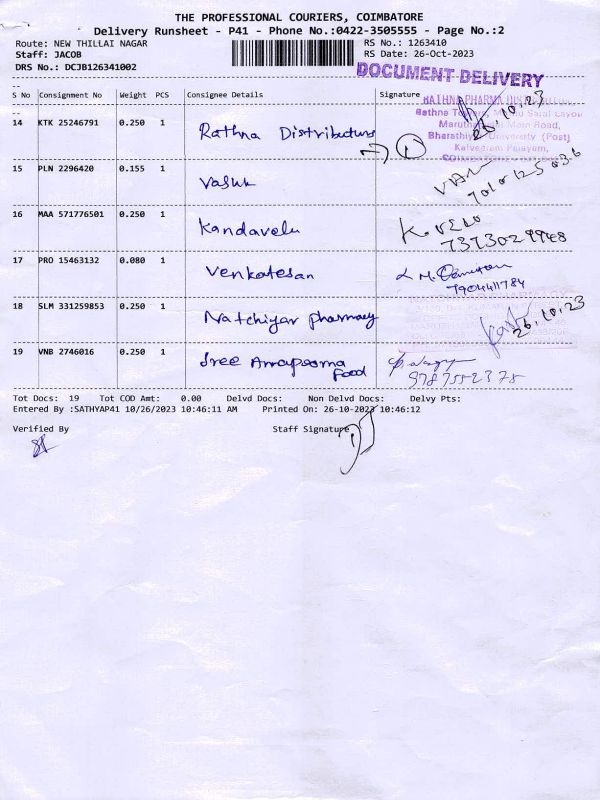 THE PROFESSIONAL COURIERS, COIMBATORE
Delivery Runsheet - P41 - Phone No.:0422-3505555 - Page No.:2
Route: NEW THILLAI NAGAR
RS No.: 1263410
Staff: JACOB
RS Date: 26-Oct-2023
DRS No.: DCJB126341002
DOCUMENT DELIVERY
S No Consignment No Weight PCS Consignee Details Signature
14 KTK 25246791 0.250 1 Rathna Distributors
26.10.23
1
15 PLN 2296420 0.155 1
16 MAA 571776501 0.250 1 Kandavelu K. VELU
7373029948
17 PRO 15463132 0.080 1 Venkatesan
7904411784
18 SLM 331259853 0.250 1 Natchiyar pharmacy
26.10.23
19 VNB 2746016 0.250 1 Sree Annapoorna
Food 9787552375
Tot Docs: 19 Tot COD Amt: 0.00 Delvd Docs: Non Delvd Docs: Delvy Pts:
Entered By :SATHYAP41 10/26/2023 10:46:11 AM Printed On: 26-10-2023 10:46:12
Verified By Staff Signature